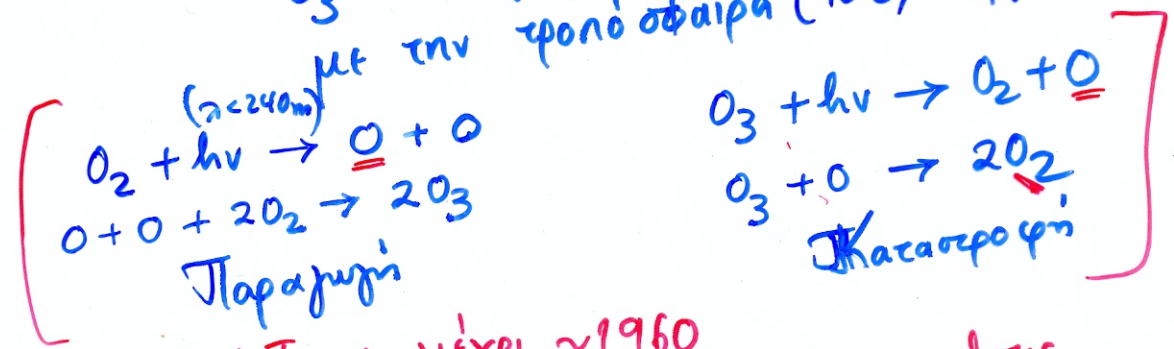 O₃
με την τροπόσφαιρα
(λ<240nm)
O₂ + hν → O + O
O + O + 2O₂ → 2O₃
Παραγωγή
O₃ + hν → O₂ + O
O₃ + O → 2O₂
Καταστροφή
μέχρι ~1960